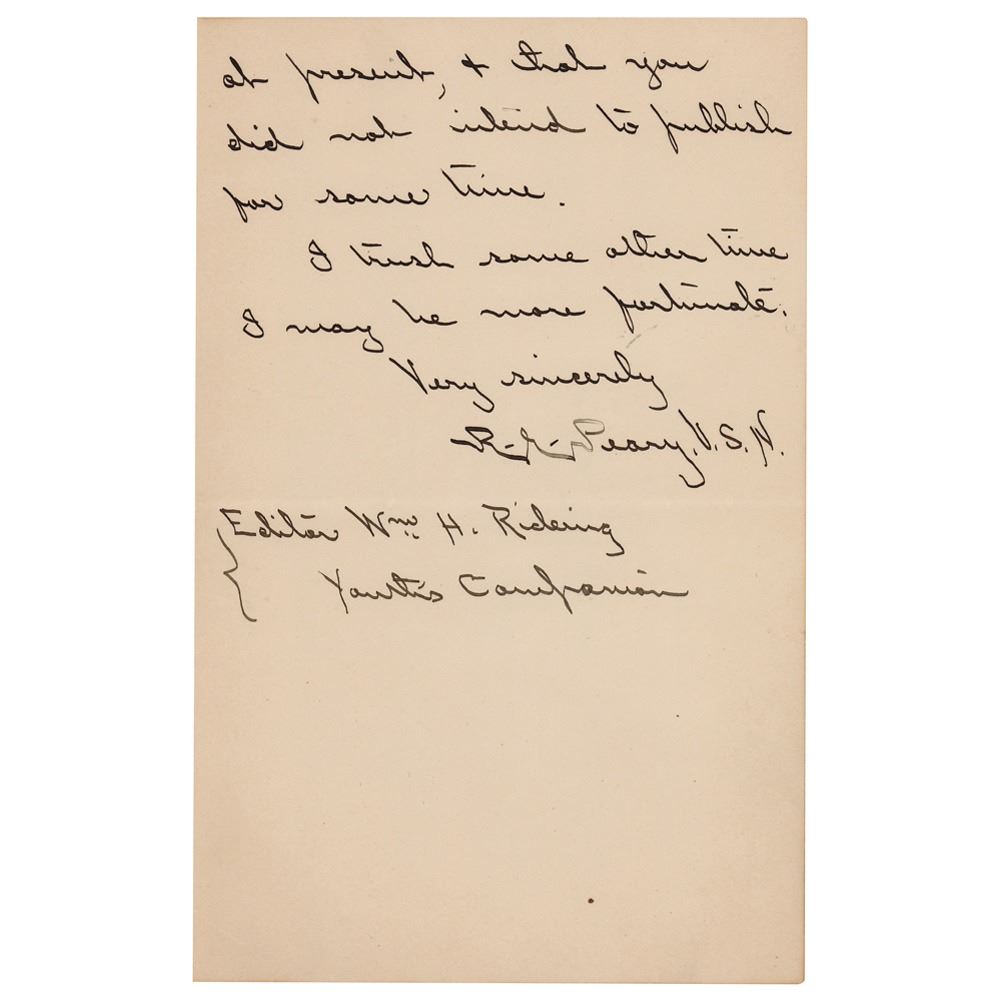 at present, & that you
did not intend to publish
for some time.
I trust some other time
I may be more fortunate.
Very sincerely
R. E. Peary, U.S.N.
Editor Wm. H. Rideing
Youth's Companion